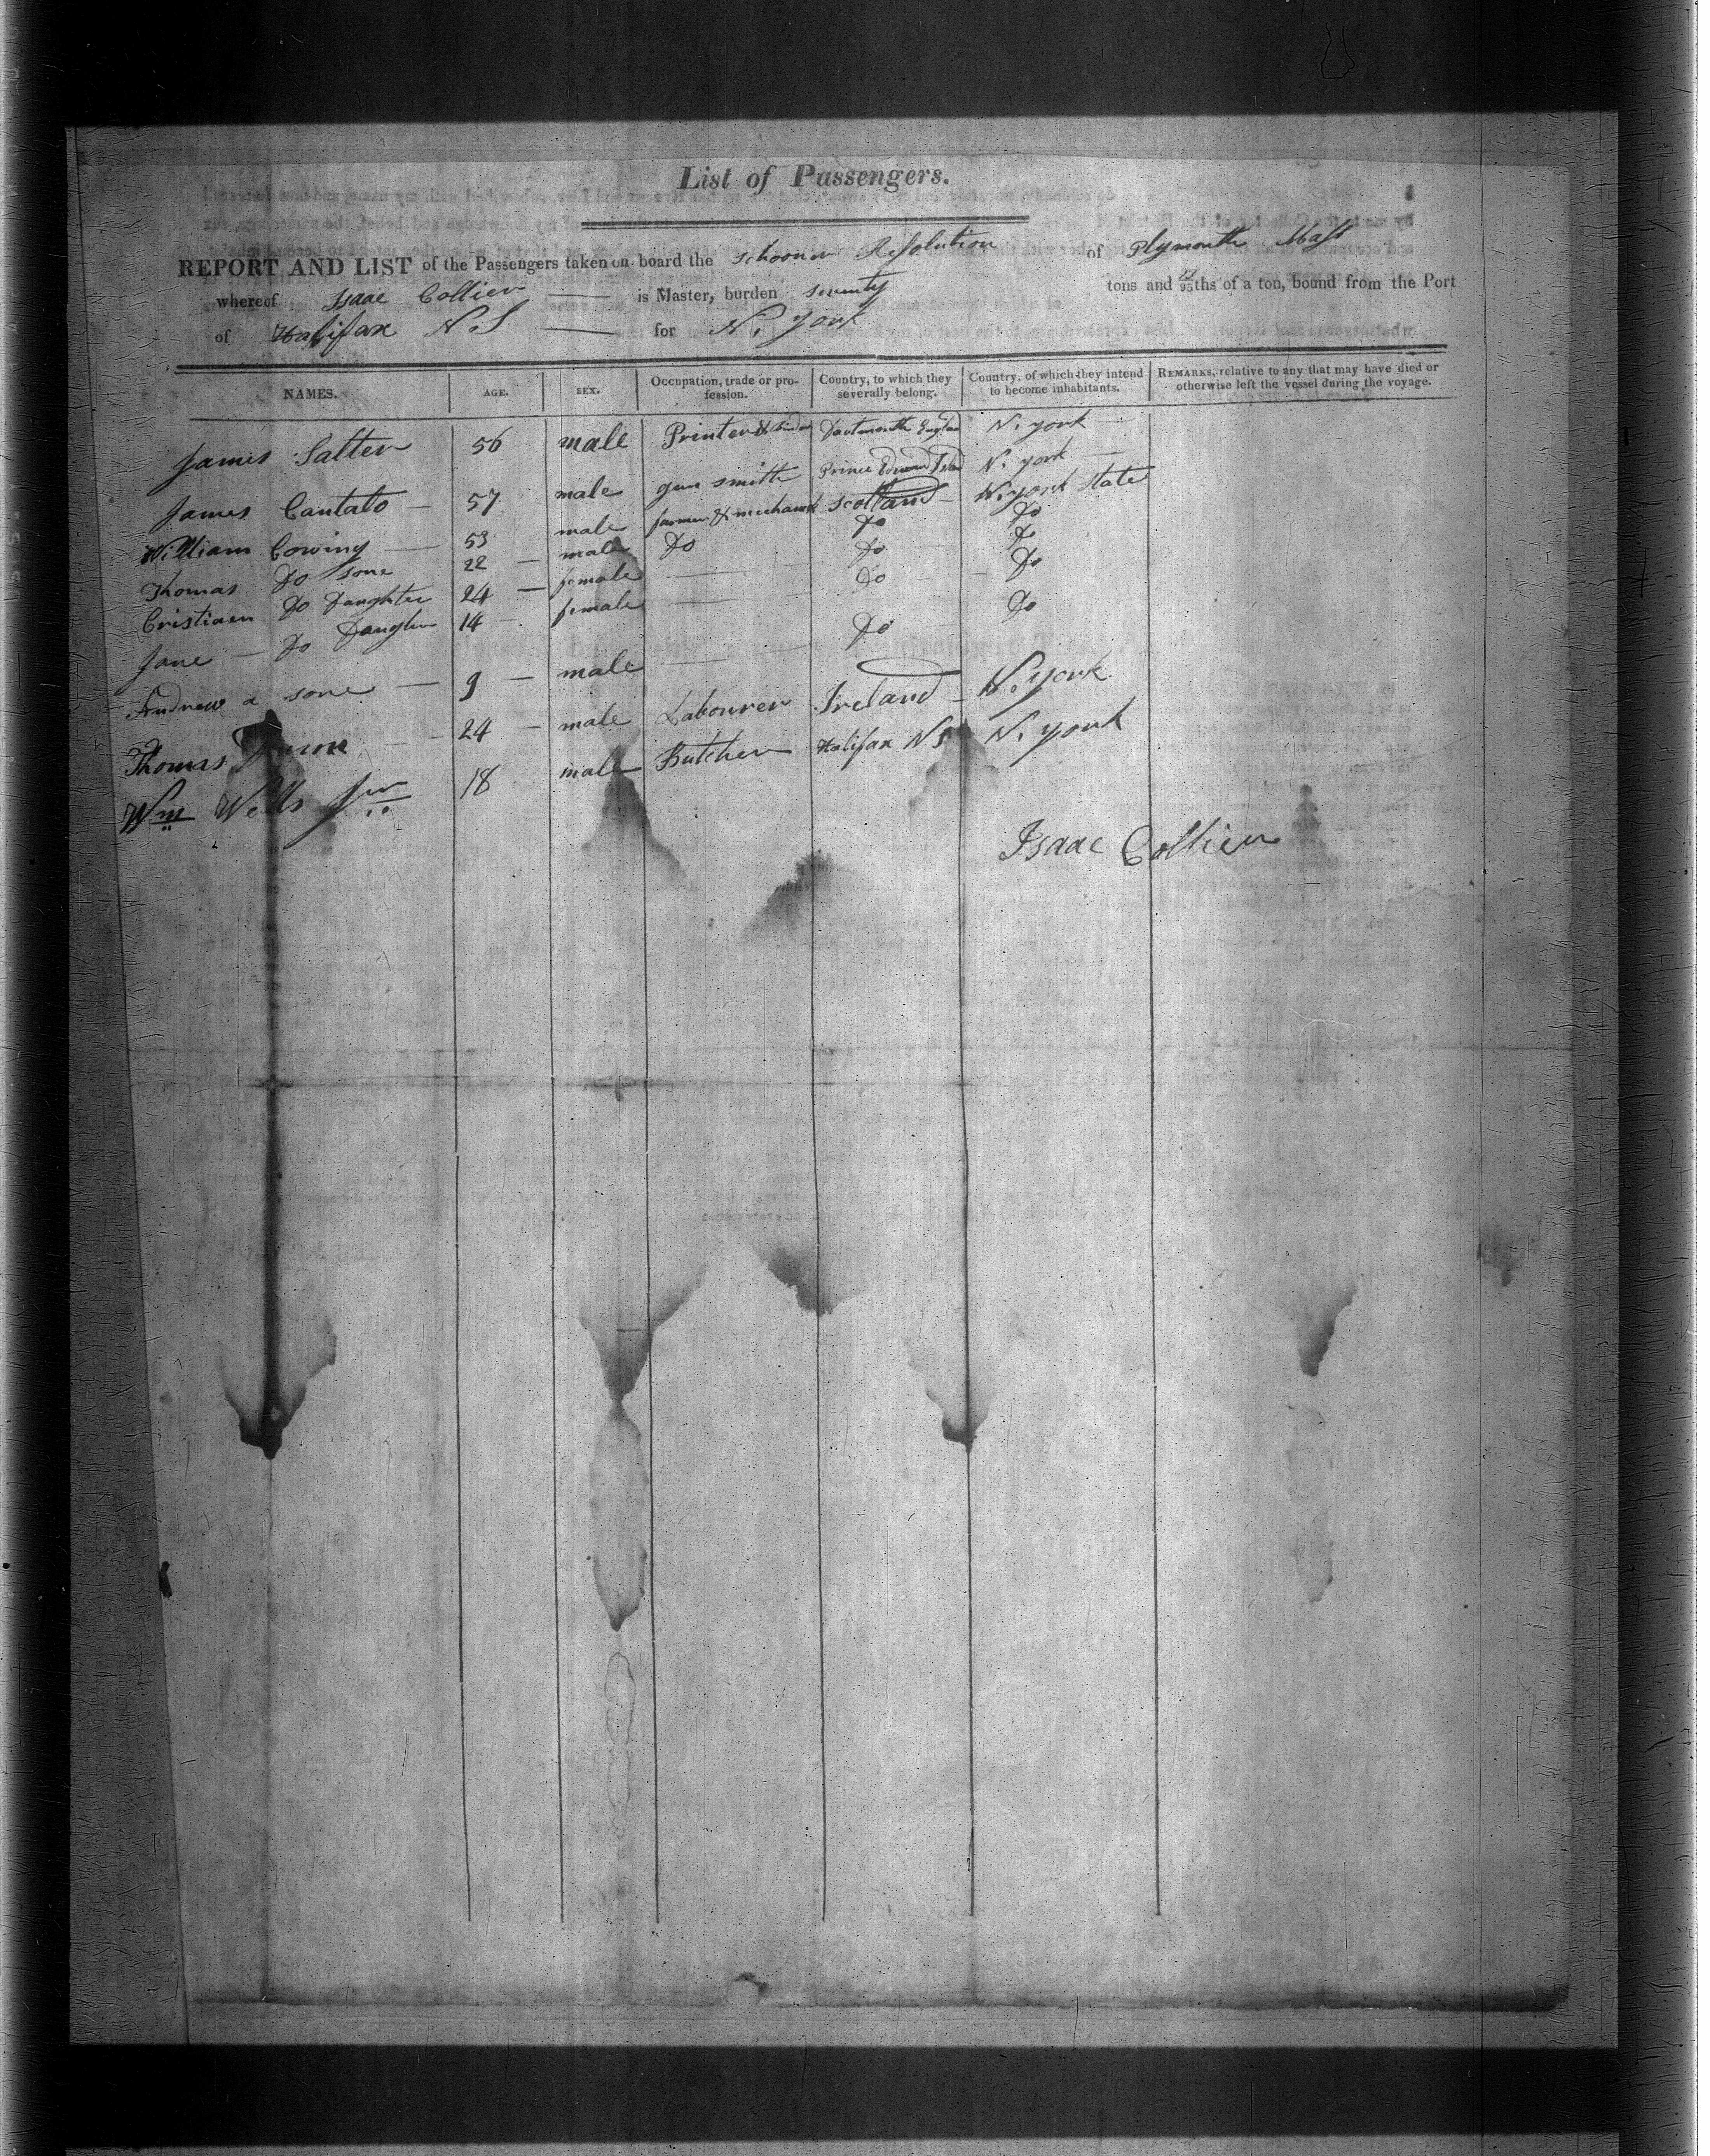 List of Passengers.
REPORT AND LIST of the Passengers taken on board the schooner Resolution of Plymouth Mass
whereof Isaac Collier is Master, burden seventy tons and /95ths of a ton, bound from the Port
of Halifax N.S for N. York
NAMES. AGE. SEX. Occupation, trade or profession. Country, to which they severally belong. Country, of which they intend to become inhabitants. REMARKS, relative to any that may have died or otherwise left the vessel during the voyage.
James Salter 56 male Printer & Dartmouth England N. york
James Cantalo 57 male gun smith Prince Edward Island N. york
William Cowing 53 male farmer & mechanick Scotland N. york State
Thomas Do sone 22 male Do Do Do
Cristiaen Do Daughter 24 female Do Do
Jane Do Daughter 14 female Do Do
Andrew a sone 9 male Do Do
Thomas 24 male Labourer Ireland N. york
Wm Wells Jur 18 male Butcher Halifax NS N. york
Isaac Collier